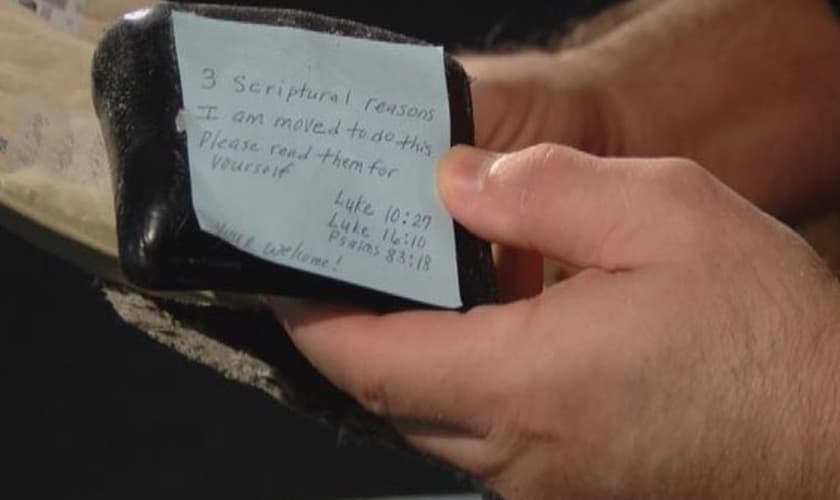 3 Scriptural reasons
I am moved to do this.
Please read them for
yourself
Luke 10:27
Luke 16:10
Psalms 83:18
welcome!